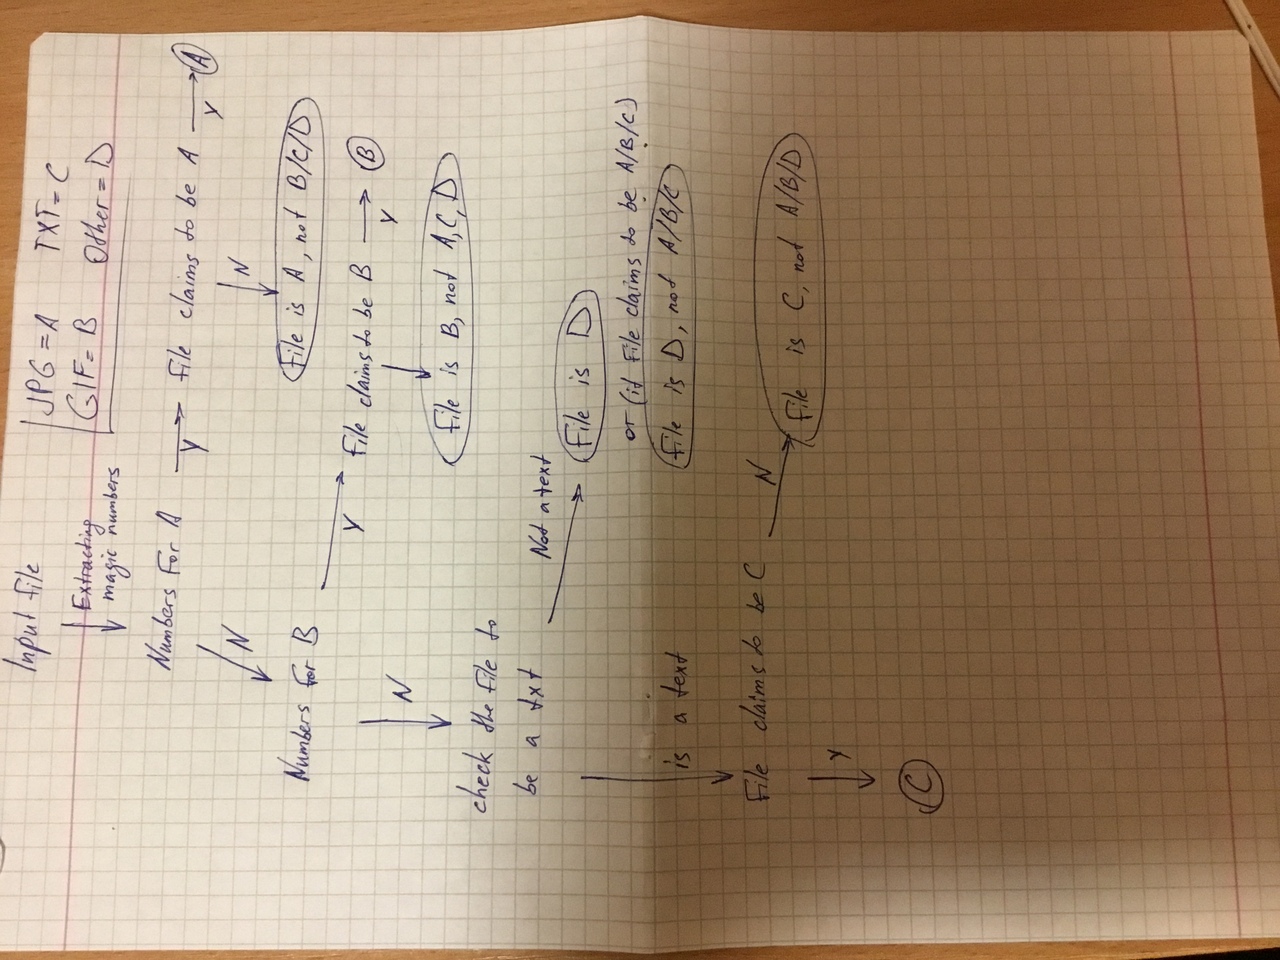 Input file
JPG = A TXT = C
GIF = B Other = D
Extracting
magic numbers
Numbers for A Y File claims to be A Y A
N N
Numbers for B File is A, not B/C/D
Y File claims to be B Y B
N
File is B, not A,C,D
check the file to
be a txt Not a text
File is D
or (if file claims to be A/B/C)
is a text File is D, not A/B/C
File claims to be C N File is C, not A/B/D
Y
C